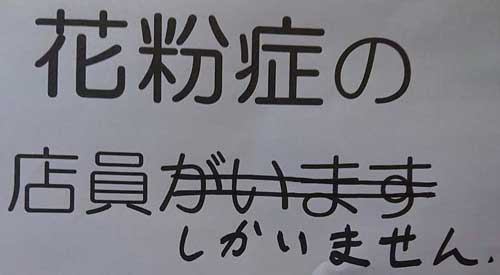 花粉症の
店員がいます
しかいません.